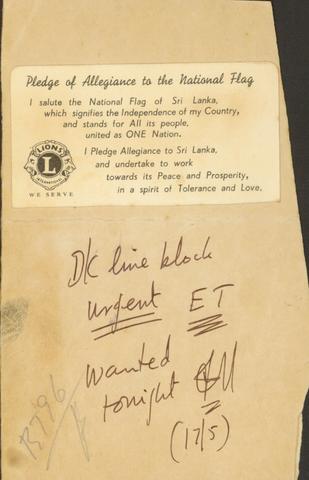 Pledge of Allegiance to the National Flag
I salute the National Flag of Sri Lanka,
which signifies the Independence of my Country,
and stands for All its people,
united as ONE Nation.
LIONS
L
INTERNATIONAL
WE SERVE
I Pledge Allegiance to Sri Lanka,
and undertake to work
towards its Peace and Prosperity,
in a spirit of Tolerance and Love.
D/C line block
urgent ET
wanted
tonight
(17/5)